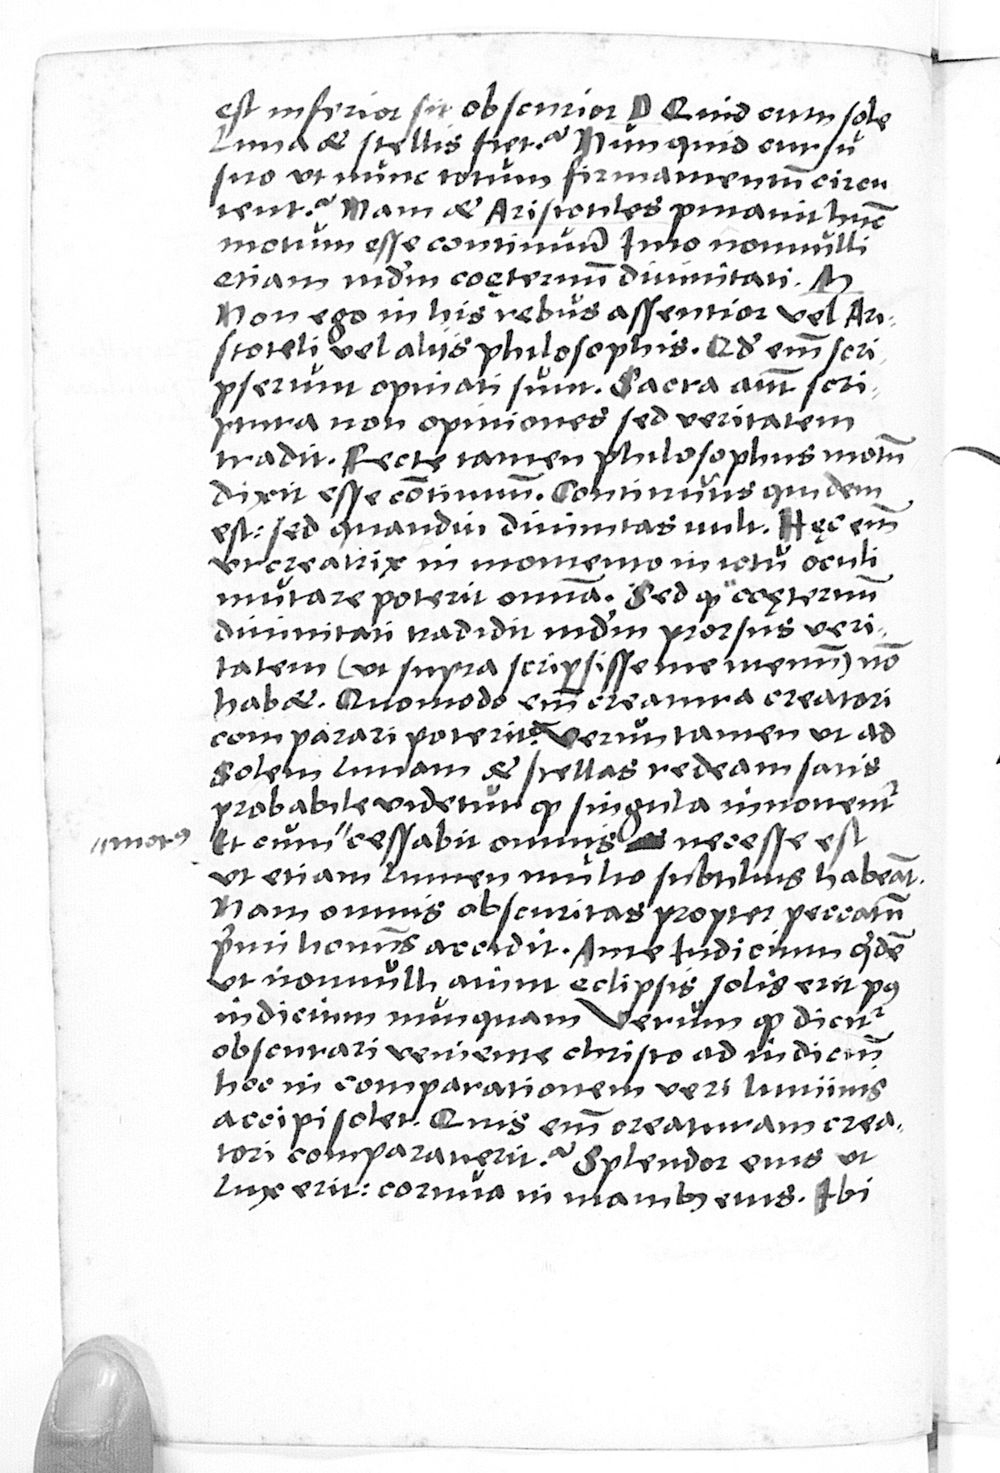 est inferior sit obscurior D Quid cum sole
Luna & stellis fiet? Nunquid cursū
suo ut nunc totum firmamentū circu
ient? Nam & Aristotiles putauit hūc
motum esse continuum Imo nonnulli
etiam mūdū coęternū diuinitati. M
Non ego in his rebus assentior vel Ari-
stoteli vel alijs philosophis. Qd' em̄ scri-
pserunt opinati sunt. Sacra aūt scri-
ptura non opiniones sed veritatem
tradit. Recte tamen philosophus motū
dixit esse cōtinuū. Continuus quidem
est: sed quandiu diuinitas uult. Hęc em̄
ut creatrix in momento in ictu oculi
mutare poterit omnīa. Sed qui coęternū
diuinitati tradidit mūdū prorsus veri-
tatem (ut supra scripsisse me memini) nō
hab&. Quomodo em̄ creatura creatori
comparari poterit? Veruntamen ut ad
Solem lunam & stellas redeam satis
probabile videtur q singula innouent'
Et cum cessabit omnis necesse est
"motꝰ
ut etiam lumen multo subtilius habeāt.
Nam omnis obscuritas propter peccatū
p'mi hominis accidit. Ante Iudicium q'dē
ut nonnulli aiunt eclipsis solis erit pꝰ
iudicium nunquam Verum q dicit'
obscurari veniente christo ad iudiciū
hoc in comparationem veri luminis
accipi solet. Quis em̄ creaturam crea-
tori comparauerit? Splendor eius ut
lux erit: cornua in manibꝰ eius. Ibi